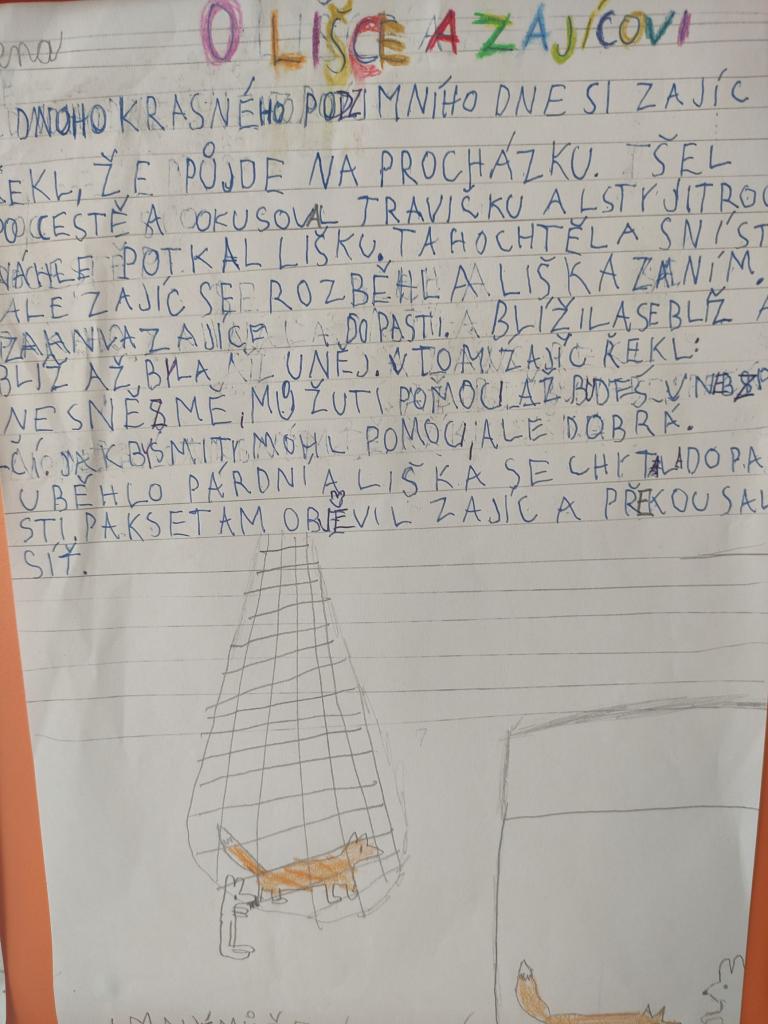 O LIŠCE A ZAJÍCOVI
ena
DNOHO KRASNÉHO PODZIMNÍHO DNE SI ZAJÍC
ŘEKL, ŽE PŮJDE NA PROCHÁZKU. ŠEL
PO CESTĚ A OKUSOVAL TRAVIČKU A LSTY JITROC
NÁHLE POTKAL LIŠKU. TA HO CHTĚLA SNÍST
ALE ZAJÍC SE ROZBĚHL A LIŠKA ZA NÍM.
ZAJÍCE DO PASTI. BLÍŽILA SE BLÍŽ A
BLÍŽ AŽ BYLA U NĚJ. V TOM ZAJÍC ŘEKL:
NESNĚZ MĚ, MŮŽU TI POMOCI AŽ BUDEŠ V NEBZP
ČÍ. JAK BY MI TY MOHL POMOCI, ALE DOBRÁ.
UBĚHLO PÁR DNÍ A LIŠKA SE CHYTLA DO PA
STI. PAK SE TAM OBJEVIL ZAJÍC A PŘEKOUSAL
SÍŤ.